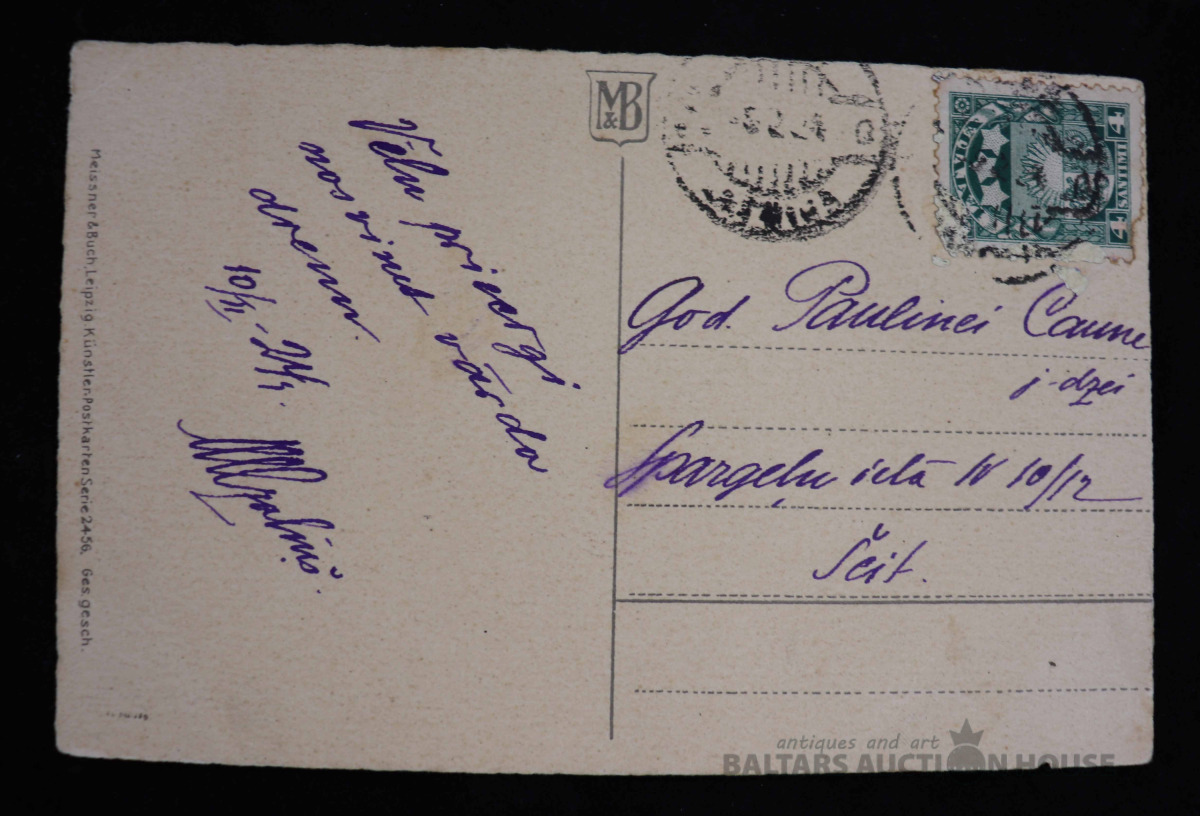 Meissner & Buch, Leipzig. Künstler-Postkarten Serie 2456. Ges. gesch.
M&B
Vēlu priecīgi
nosvinēt vārda
dienu.
LATVIJA
4 SANTIMI 4
God. Paulinei Caune
j-dzei
Spargeļu ielā № 10/12
Šeit.
antiques and art
BALTARS AUCTION HOUSE